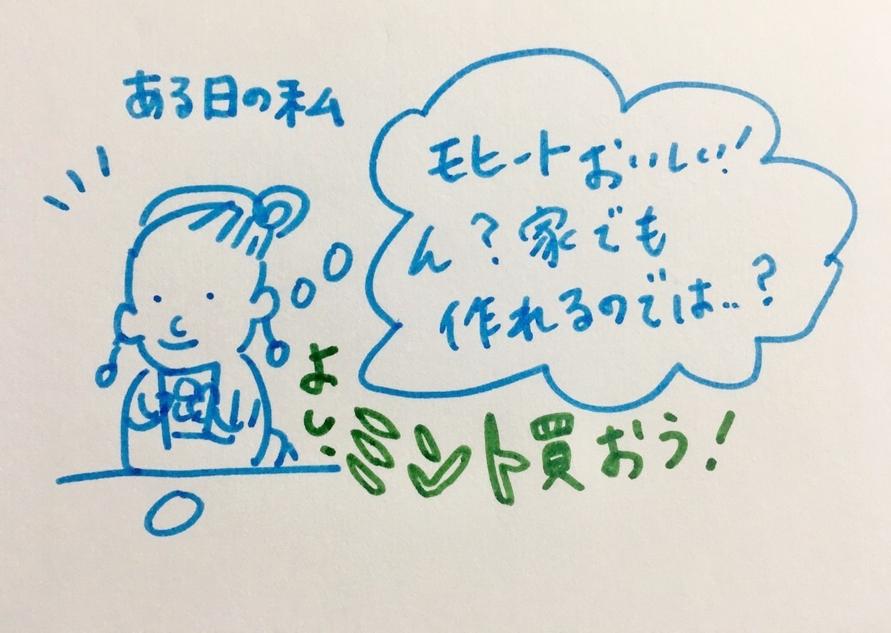 ある日の私
モヒートおいしい!
ん?家でも
作れるのでは..?
よし.
ミント買おう!